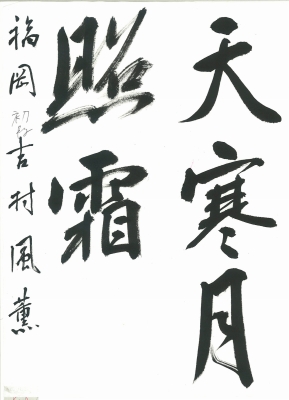 天寒月
照霜
福岡 吉村風薫